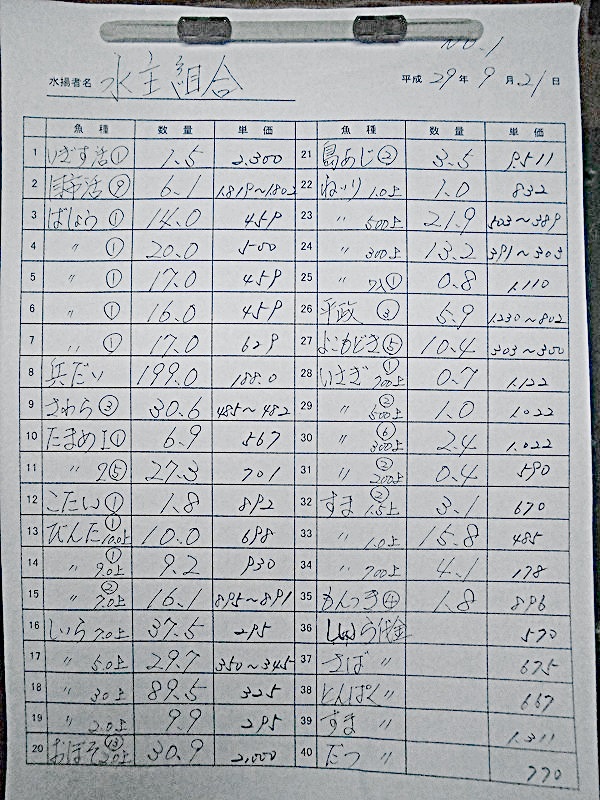 NO.1
水揚者名 水主組合 平成 29年 9月 21日
魚種 数量 単価 魚種 数量 単価
1 いぎす活① 1.5 2,300 21 島あじ② 3.5 1,511
2 活⑨ 6.1 1,819～1,802 22 ねいり 1.0上 1.0 832
3 ばしょう① 14.0 459 23 〃 500上 21.9 503～389
4 〃 ① 20.0 500 24 〃 300上 13.2 391～303
5 〃 ① 17.0 459 25 〃 ① 0.8 1,110
6 〃 ① 16.0 459 26 平政 ③ 5.9 1,230～802
7 〃 ① 17.0 629 27 よこもどき⑤ 10.4 303～300
8 兵だい 199.0 188.0 28 いさぎ ① 700上 0.7 1,122
9 さわら③ 30.6 485～482 29 〃 ② 500上 1.0 1,022
10 たまめI① 6.9 567 30 〃 ⑥ 300上 2.4 1,022
11 〃 2⑤ 27.3 701 31 〃 ② 200上 0.4 590
12 こだい① 1.8 892 32 すま ② 1.5上 3.1 670
13 びんた ① 10.0上 10.0 698 33 〃 1.0上 15.8 485
14 〃 ① 9.0上 9.2 930 34 〃 700上 4.1 178
15 〃 ② 7.0上 16.1 895～891 35 もんつき④ 1.8 896
16 しいら 7.0上 37.5 295 36 しいら代金 570
17 〃 5.0上 29.7 350～345 37 さば 〃 675
18 〃 3.0上 89.5 325 38 とんぱく 〃 667
19 〃 2.0上 9.9 295 39 すま 〃 1,311
20 おぼそ ⑬ 2.0上 30.9 2,000 40 だつ 〃 770